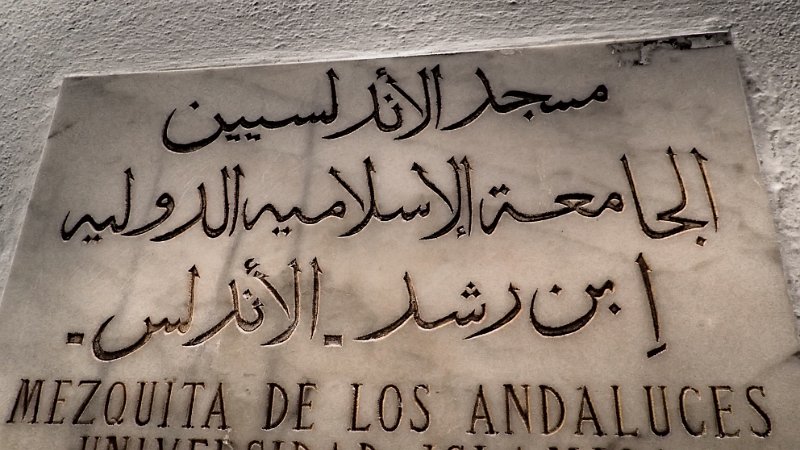 مسجد الأندلسيين
الجامعة الإسلاميه الدوليه
إبن رشد . الأندلس .
MEZQUITA DE LOS ANDALUCES
UNIVERSIDAD ISLAMICA